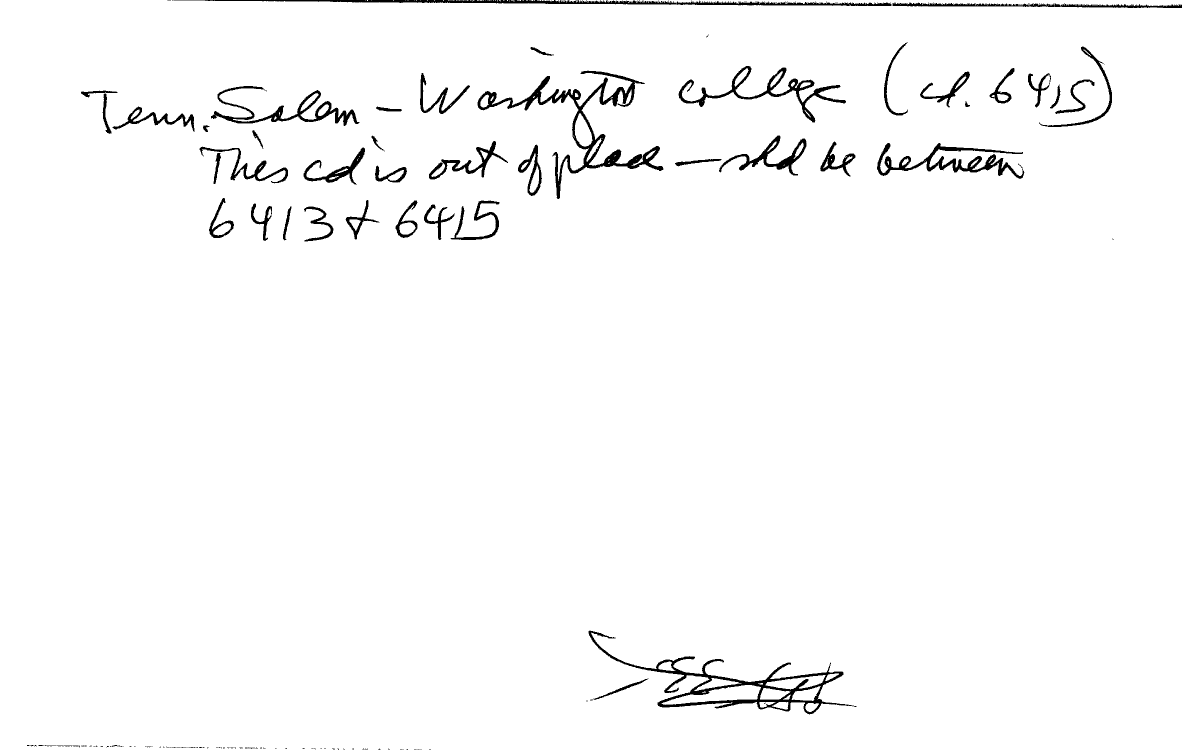 Tenn. Salem - Washington college (cf. 6415)
This cd is out of place - shld be between
6413 & 6415